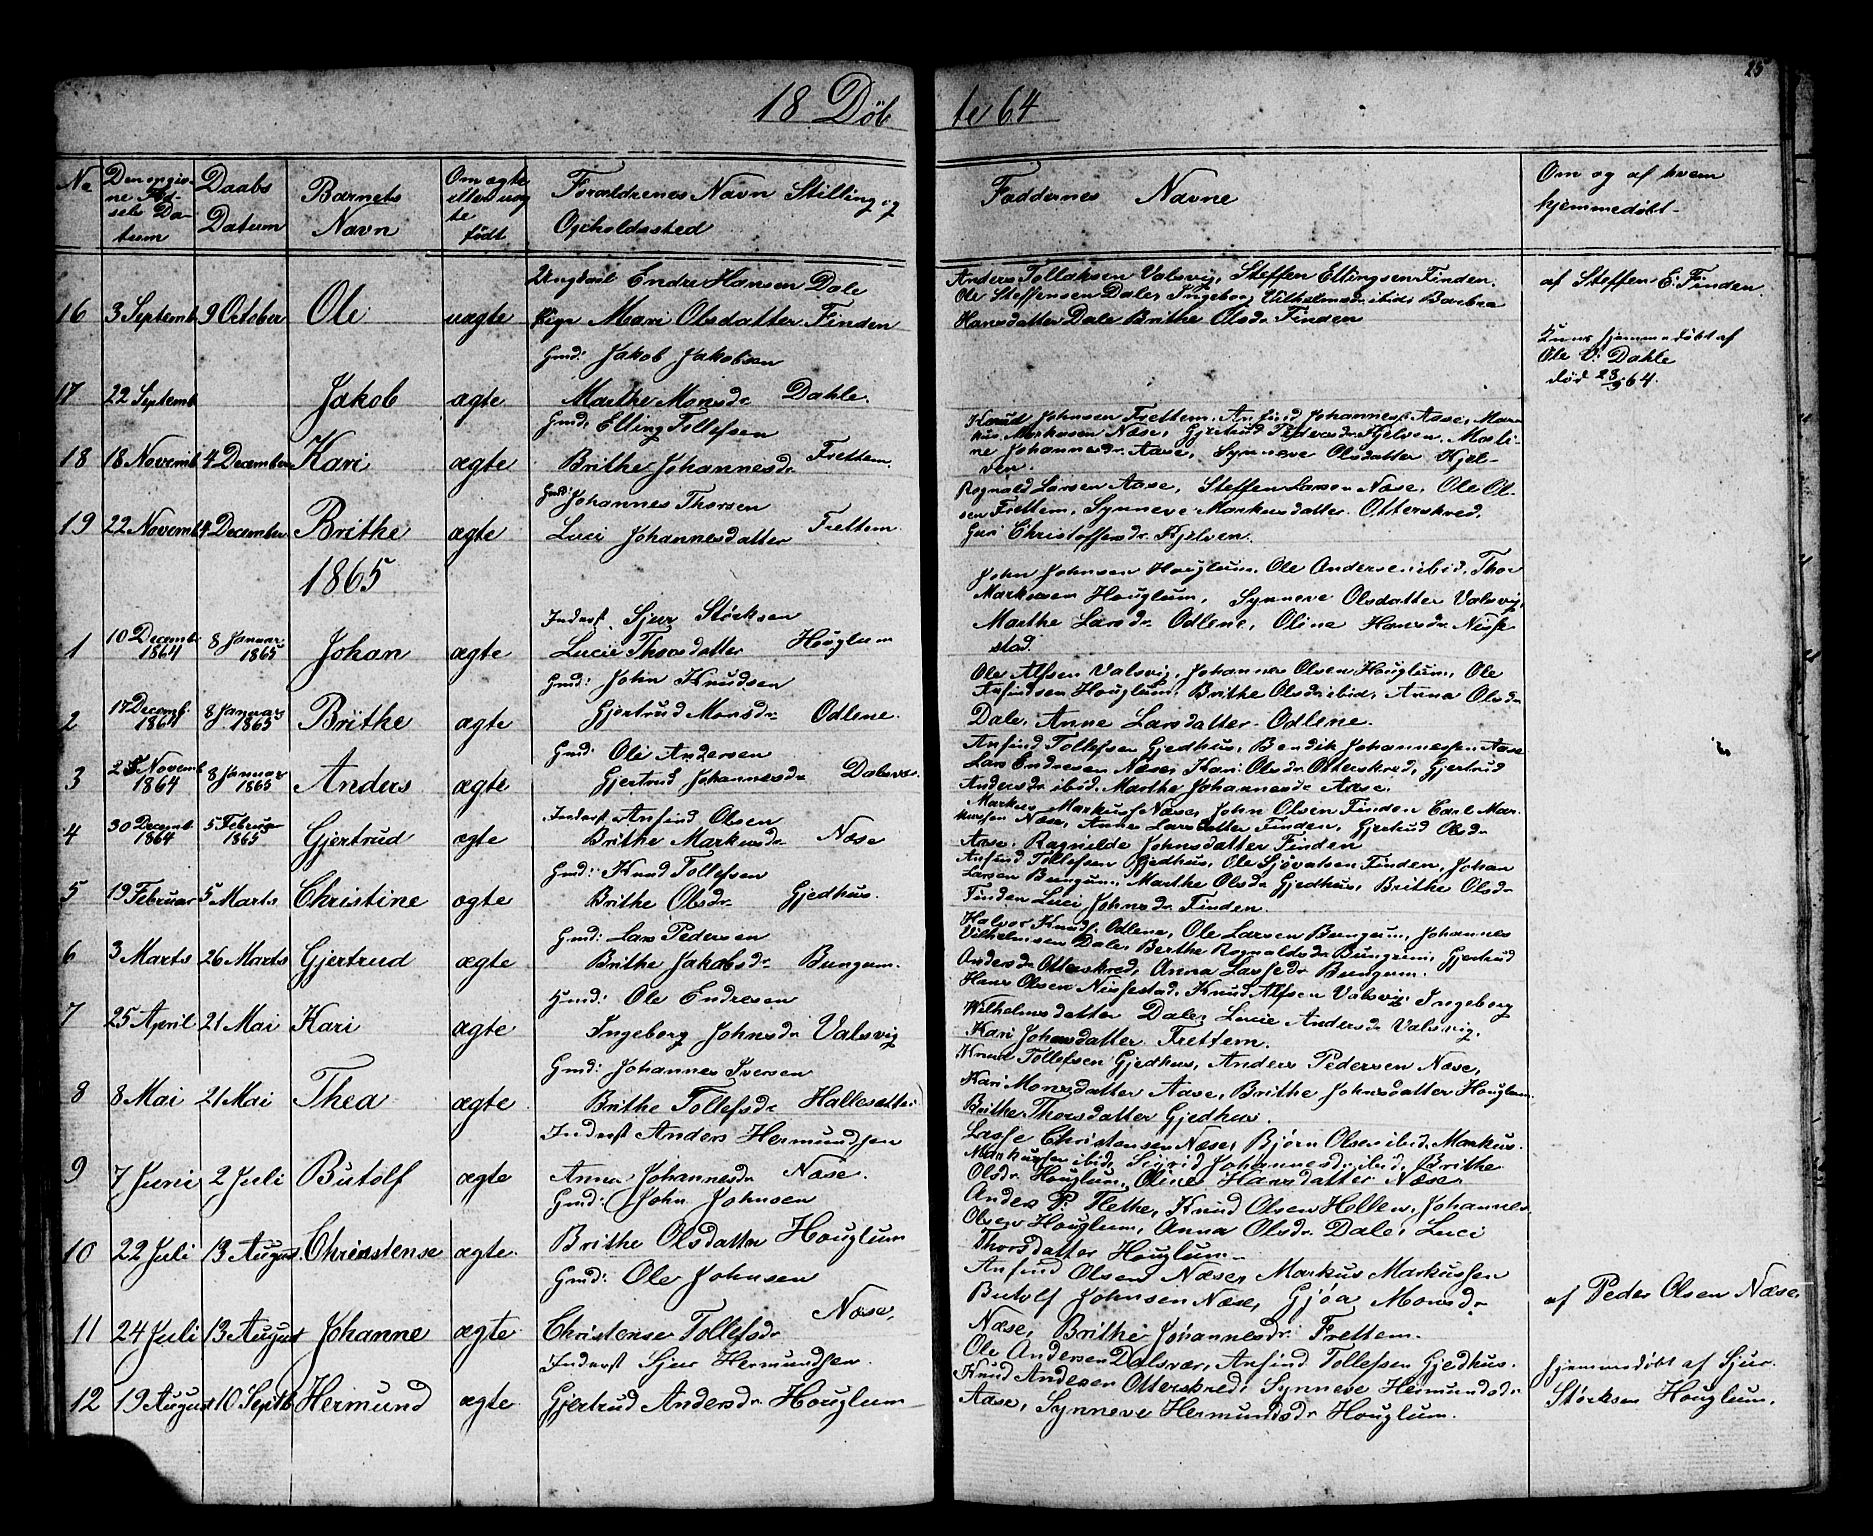 25
18 Døb te 64
No
Den opgiv-
ne Fød-
sels Da-
tum
Daabs
Datum
Barnets
Navn
Om ægte
eller uæg
te
født
Forældrenes Navn Stilling og
Opholdssted
Faddernes Navne
Om og af hvem
hjemmedøbt
16 3 Septemb 9 October Ole uægte
Ungkarl Endre Hansen Dale
Pige Mari Olsdatter Finden
Anders Tollaksen Valsvig, Steffen Ellingsen Finden.
Ole Steffensen Dale, Ingeborg Vilhelmsdr ibid, Barbra
Hansdatter Dale Brithe Olsdr Finden
af Steffen E. Finden.
17 22 Septemb Jakob ægte
Gmd: Jakob Jakobsen
Marthe Monsdr Dahle.
Kuns hjemmedøbt af
Ole V. Dahle
død 28/9 64.
18 18 Novemb 4 December Kari ægte
Gmd: Elling Tollefsen
Brithe Johannesdr Frettem.
Knud Johnsen Frettem, Anfind Johannes. Aase, Mar-
kus Markusen Næse, Gjertrud Pedersdr Kjelven, Mali-
ne Johannesdr Aase, Synneve Olsdatter Kjel-
ven.
19 22 Novemb 4 December Brithe ægte
Gmd: Johannes Thorsen
Luci Johannesdatter Frettem.
Rognald Larsen Aase, Steffen Larsen Næse, Ole Ol-
sen Frettem, Synneve Markusdatter Otterskred,
Guri Christoffersdr Kjelven.
1865
1 10 Decemb 1864 8 Januar 1865 Johan ægte
Inderst Sjur Størksen
Lucie Thorsdatter Houglum
John Johnsen Houglum, Ole Andersen ibid, Thor
Markusen Houglum, Synneve Olsdatter Valsvig,
Marthe Larsdr Odlene, Oline Hansdr Nisse-
stad.
2 17 Decemb. 1864 8 Januar 1865 Brithe ægte
Gmd: John Knudsen
Gjertrud Monsdr Odlene.
Ole Alfsen Valsvig, Johannes Olsen Houglum, Ole
Anfindsen Houglum, Brithe Olsdr ibid, Anna Olsdr
Dale, Anne Larsdatter Odlene.
3 25 Novemb 1864 8 Januar 1865 Anders ægte
Gmd: Ole Andersen
Gjertrud Johannesdr Dalsvær.
Anfind Tollefsen Gjedhus, Bendik Johannessen Aase
Lars Endresen Næse, Kari Olsdr Otterskred, Gjertrud
Andersdr ibid, Marthe Johannesdr Aase.
4 30 Decemb 1864 5 Februar 1865 Gjertrud ægte
Inderst Anfind Olsen
Brithe Markusdr Næse
Markus Markuss Næse, John Olsen Finden Earl Mar-
kussen Næse, Anne Larsdatter Finden, Gjertrud Olsdr
Aase, Ragnilde Johnsdatter Finden
5 19 Februar 5 Marts Christine ægte
Gmd: Knud Tollefsen
Brithe Olsdr Gjedhus.
Anfind Tollefsen Gjedhus, Ole Sjovatsen Finden, Johan
Larsen Bungum, Marthe Olsdr Gjedhus, Brithe Olsdr
Finden Luci Johnsdr Finden.
6 3 Marts 26 Marts Gjertrud ægte
Gmd: Lars Pedersen
Brithe Jakobsdr Bungum.
Halvor Knuds. Odlene, Ole Larsen Bungum, Johannes
Vilhelmsen Dale, Berthe Rognaldsdr Bungum, Gjertrud
Andersdr Otterskred, Anna Lassedr Bungum.
7 25 April 21 Mai Kari ægte
Gmd: Ole Endresen
Ingeborg Johnsdr Valsvig
Hans Olsen Nissestad, Knud Alfsen Valsvig, Ingeborg
Wilhelmsdatter Dale, Lucie Andersdr Valsvig,
Kari Johnsdatter Frettem.
8 8 Mai 21 Mai Thea ægte
Gmd: Johannes Iversen
Brithe Tollefsdr Hallesætter
Knud Tollefsen Gjedhus, Anders Pedersen Næse,
Kari Monsdatter Aase, Brithe Johnsdatter Houglum
Brithe Thorsdatter Gjedhus.
9 7 Juni 2 Juli Butolf ægte
Inderst Anders Hermundsen
Anna Johannesdr Næse.
Lasse Christensen Næse, Bjørn Olsen ibid, Markus
Markussen ibid, Sigrid Johannesdr ibid, Brithe
Olsdr Houglum, Oline Hansdatter Næse.
10 22 Juli 13 Augus Christense ægte
Gmd: John Johnsen
Brithe Olsdatter Houglum
Anders P. Flethe, Knud Olsen Hellen, Johannes
Olsen Houglum, Anna Olsdr Dale, Luci
Thorsdatter Houglum.
11 24 Juli 13 Augus Johanne ægte
Gmd: Ole Johnsen
Christense Tollefsdr Næse,
Anfind Olsen Næse, Markus Markussen
Butolf Johnsen Næse, Gjøa Monsdr
Næse, Brithe Johannesdr Frettem.
af Peder Olsen Næse
12 19 Augus 10 Septb Hermund ægte
Inderst Sjur Hermundsen.
Gjertrud Andersdr Houglum
Ole Andersen Dalsvær, Anfind Tollefsen Gjedhus.
Knud Andersen Otterskred, Synneve Hermundsdr
Aase, Synneve Hermundsdr Houglum.
hjemmedøbt af Sjur
Størksen Houglum.